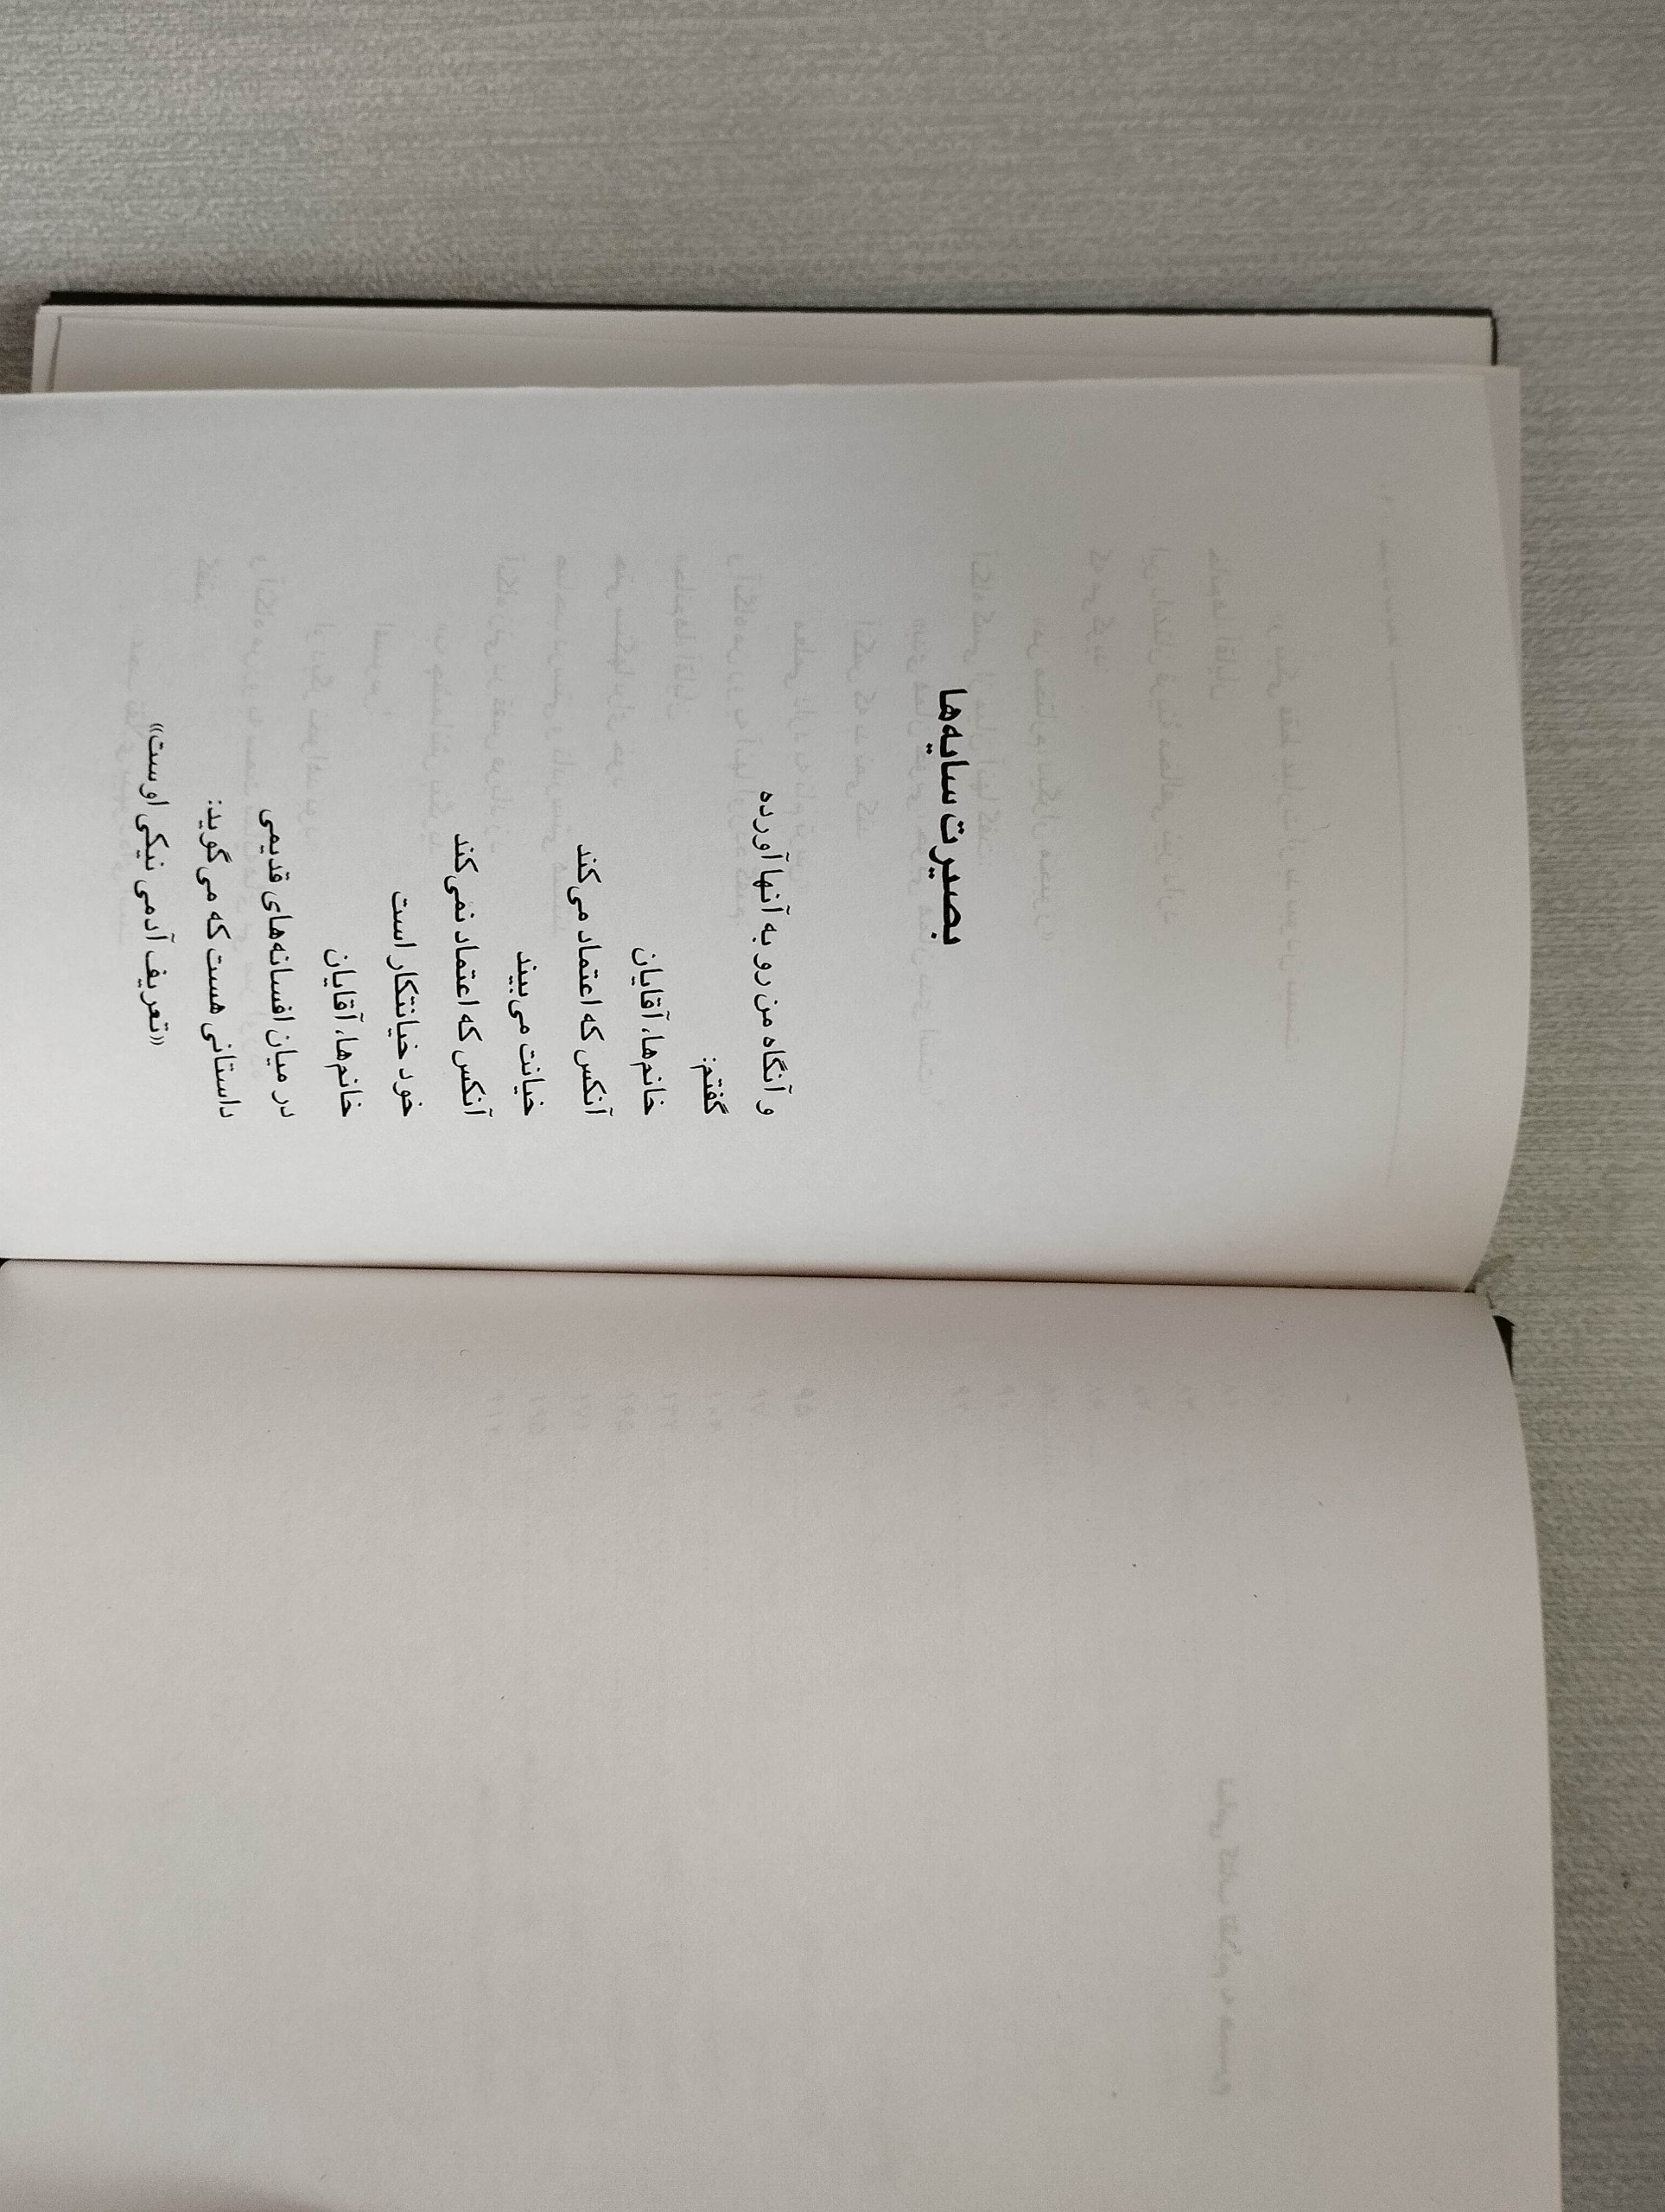 بصیرت سایه‌ها
و آنگاه من رو به آنها آورده
گفتم:
خانم‌ها، آقایان
آنکس که اعتماد می‌کند
خیانت می‌بیند
آنکس که اعتماد نمی‌کند
خود خیانتکار است
خانم‌ها، آقایان
در میان افسانه‌های قدیمی
داستانی هست که می‌گوید:
«تعریف آدمی نیکی اوست»